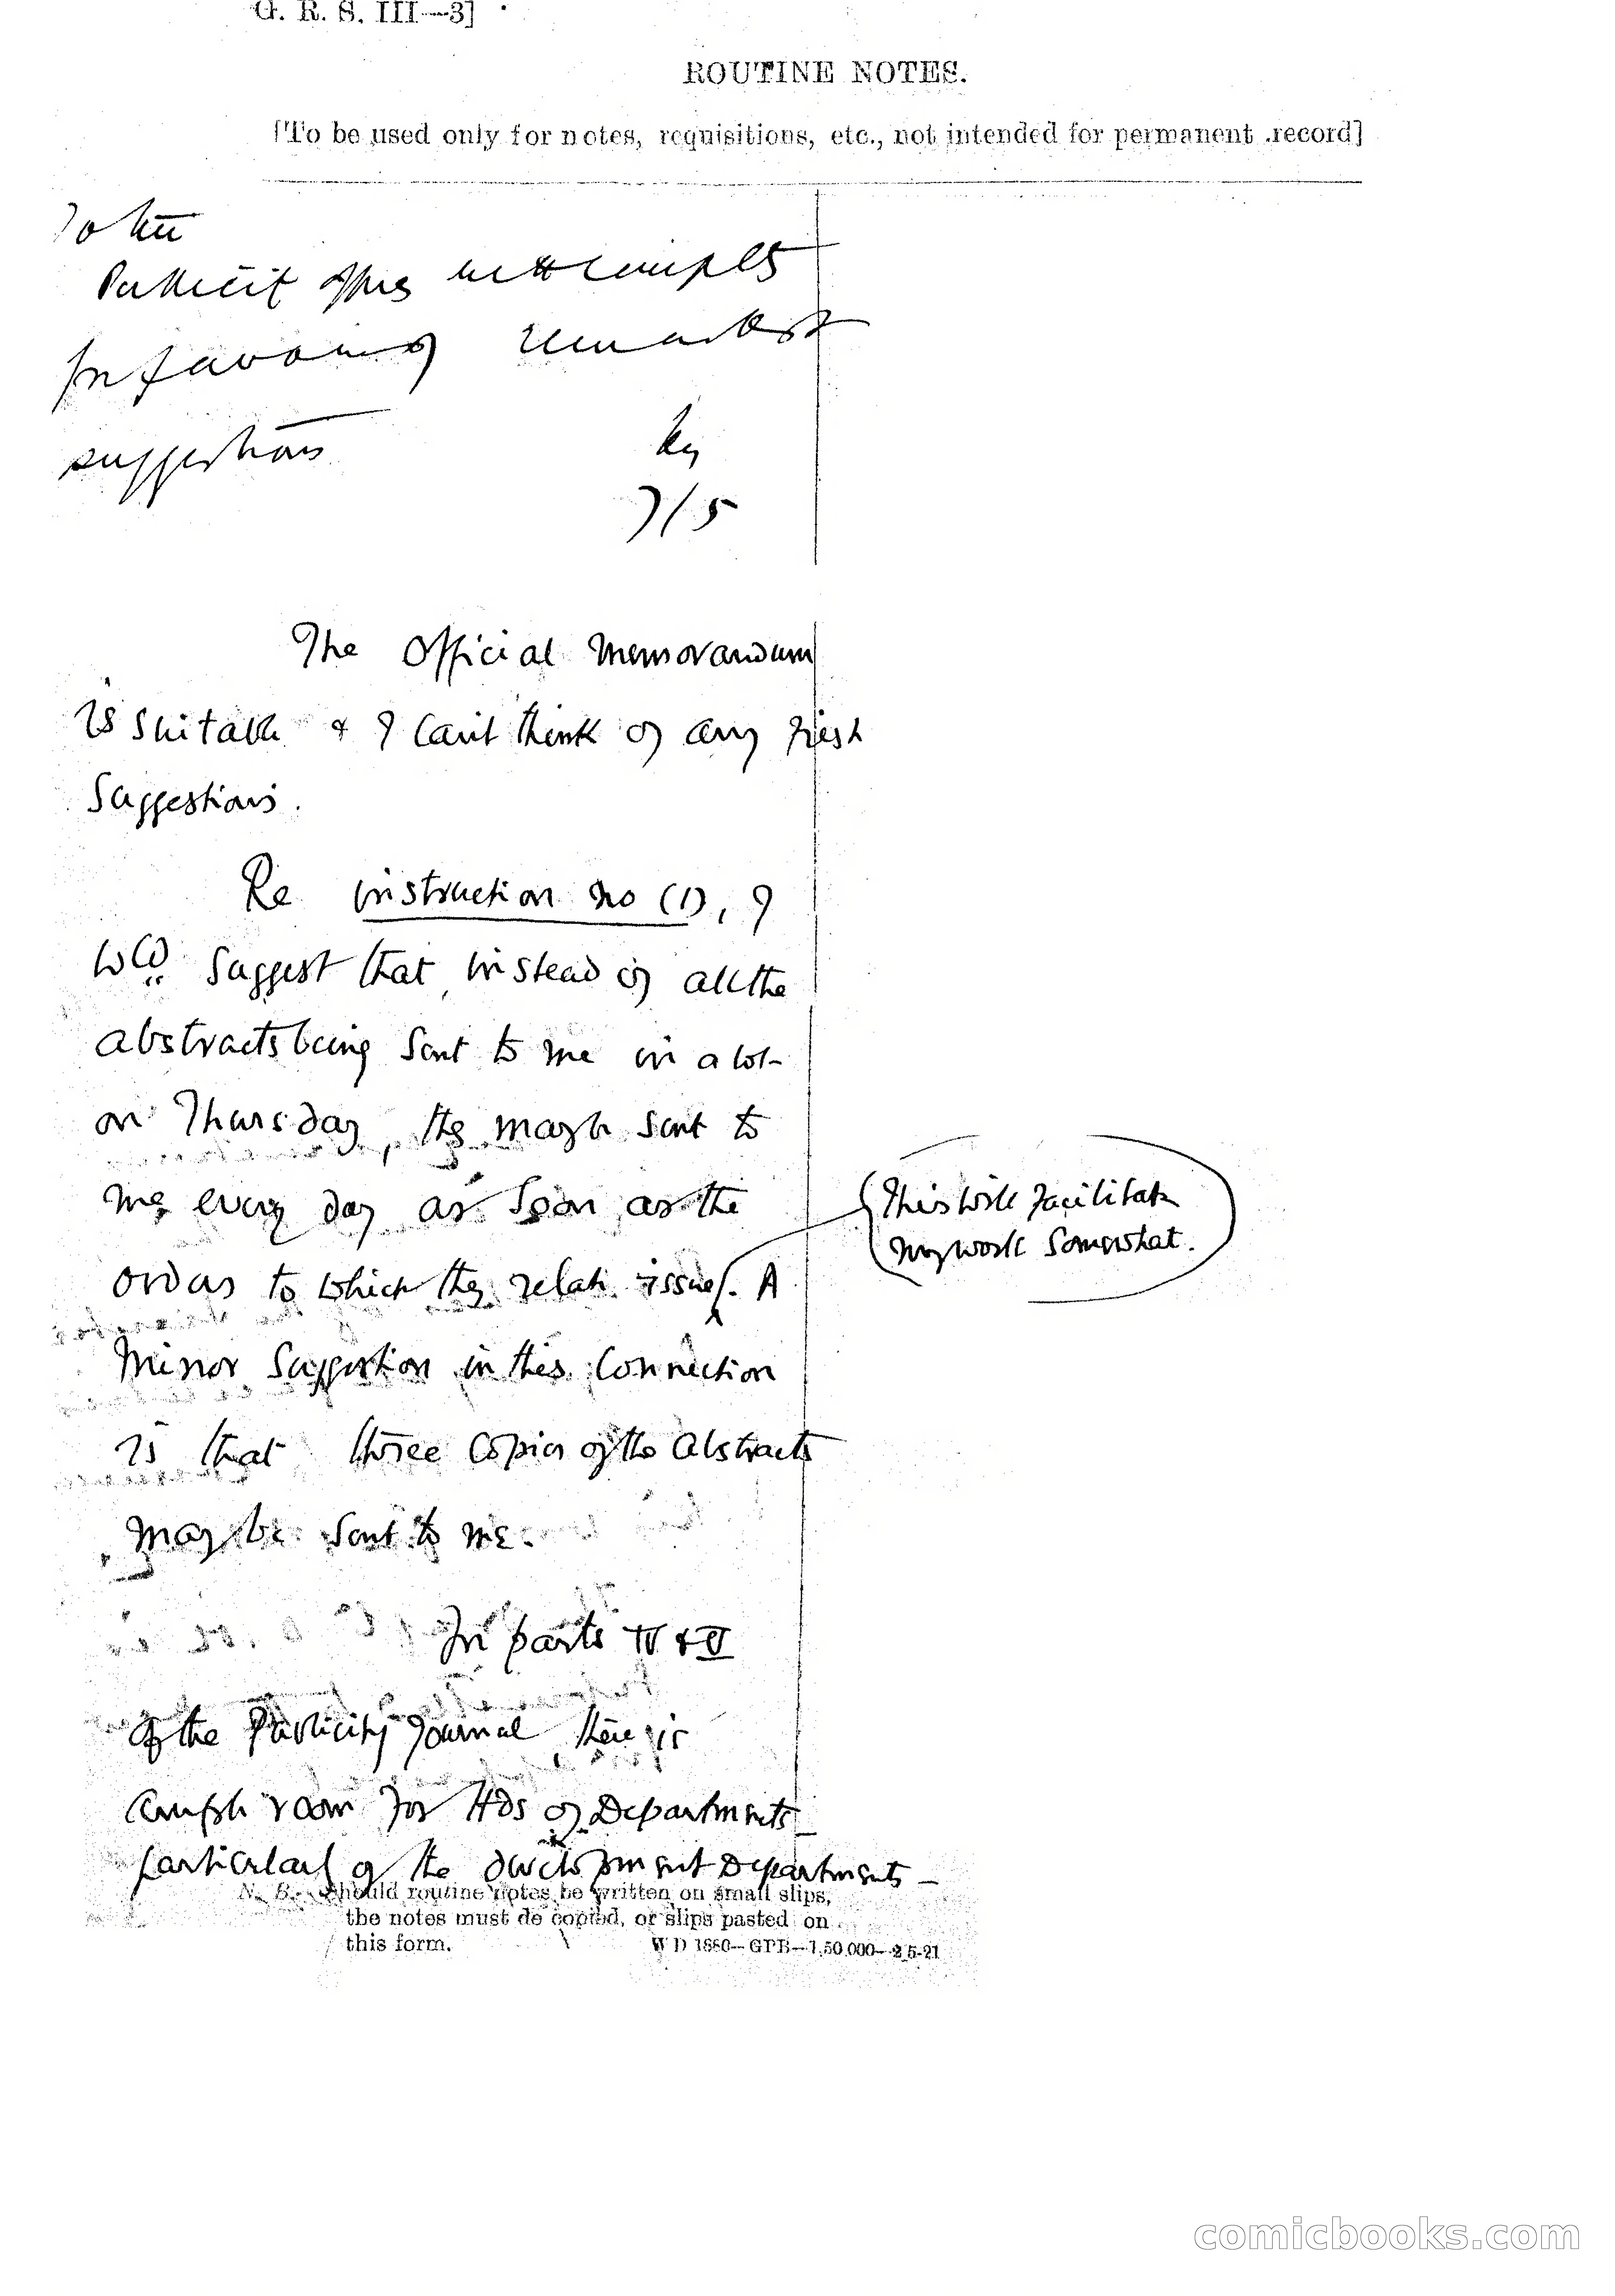 G. R. S. III—3]
ROUTINE NOTES.
[To be used only for notes, requisitions, etc., not intended for permanent record]
To the
Publicity office
for favour of remarks &
suggestions
7/5
The Official Memorandum
is suitable & I can't think of any fresh
suggestions.
Re instruction no (1), I
wld. suggest that instead of all the
abstracts being sent to me in a lot
on Thursday, they may be sent to
me every day as soon as the
orders to which they relate issue. A
(This will facilitate
my work somewhat.)
minor suggestion in this connection
is that three copies of the abstracts
may be sent to me.
In parts IV & V
of the Publicity Journal there is
ample room for Hds of Departments
particularly of the development Departments —
N. B.—Should routine notes be written on small slips,
the notes must be copied, or slips pasted on
this form.
W D 1880—GPB—1,50,000—2-5-21
comicbooks.com